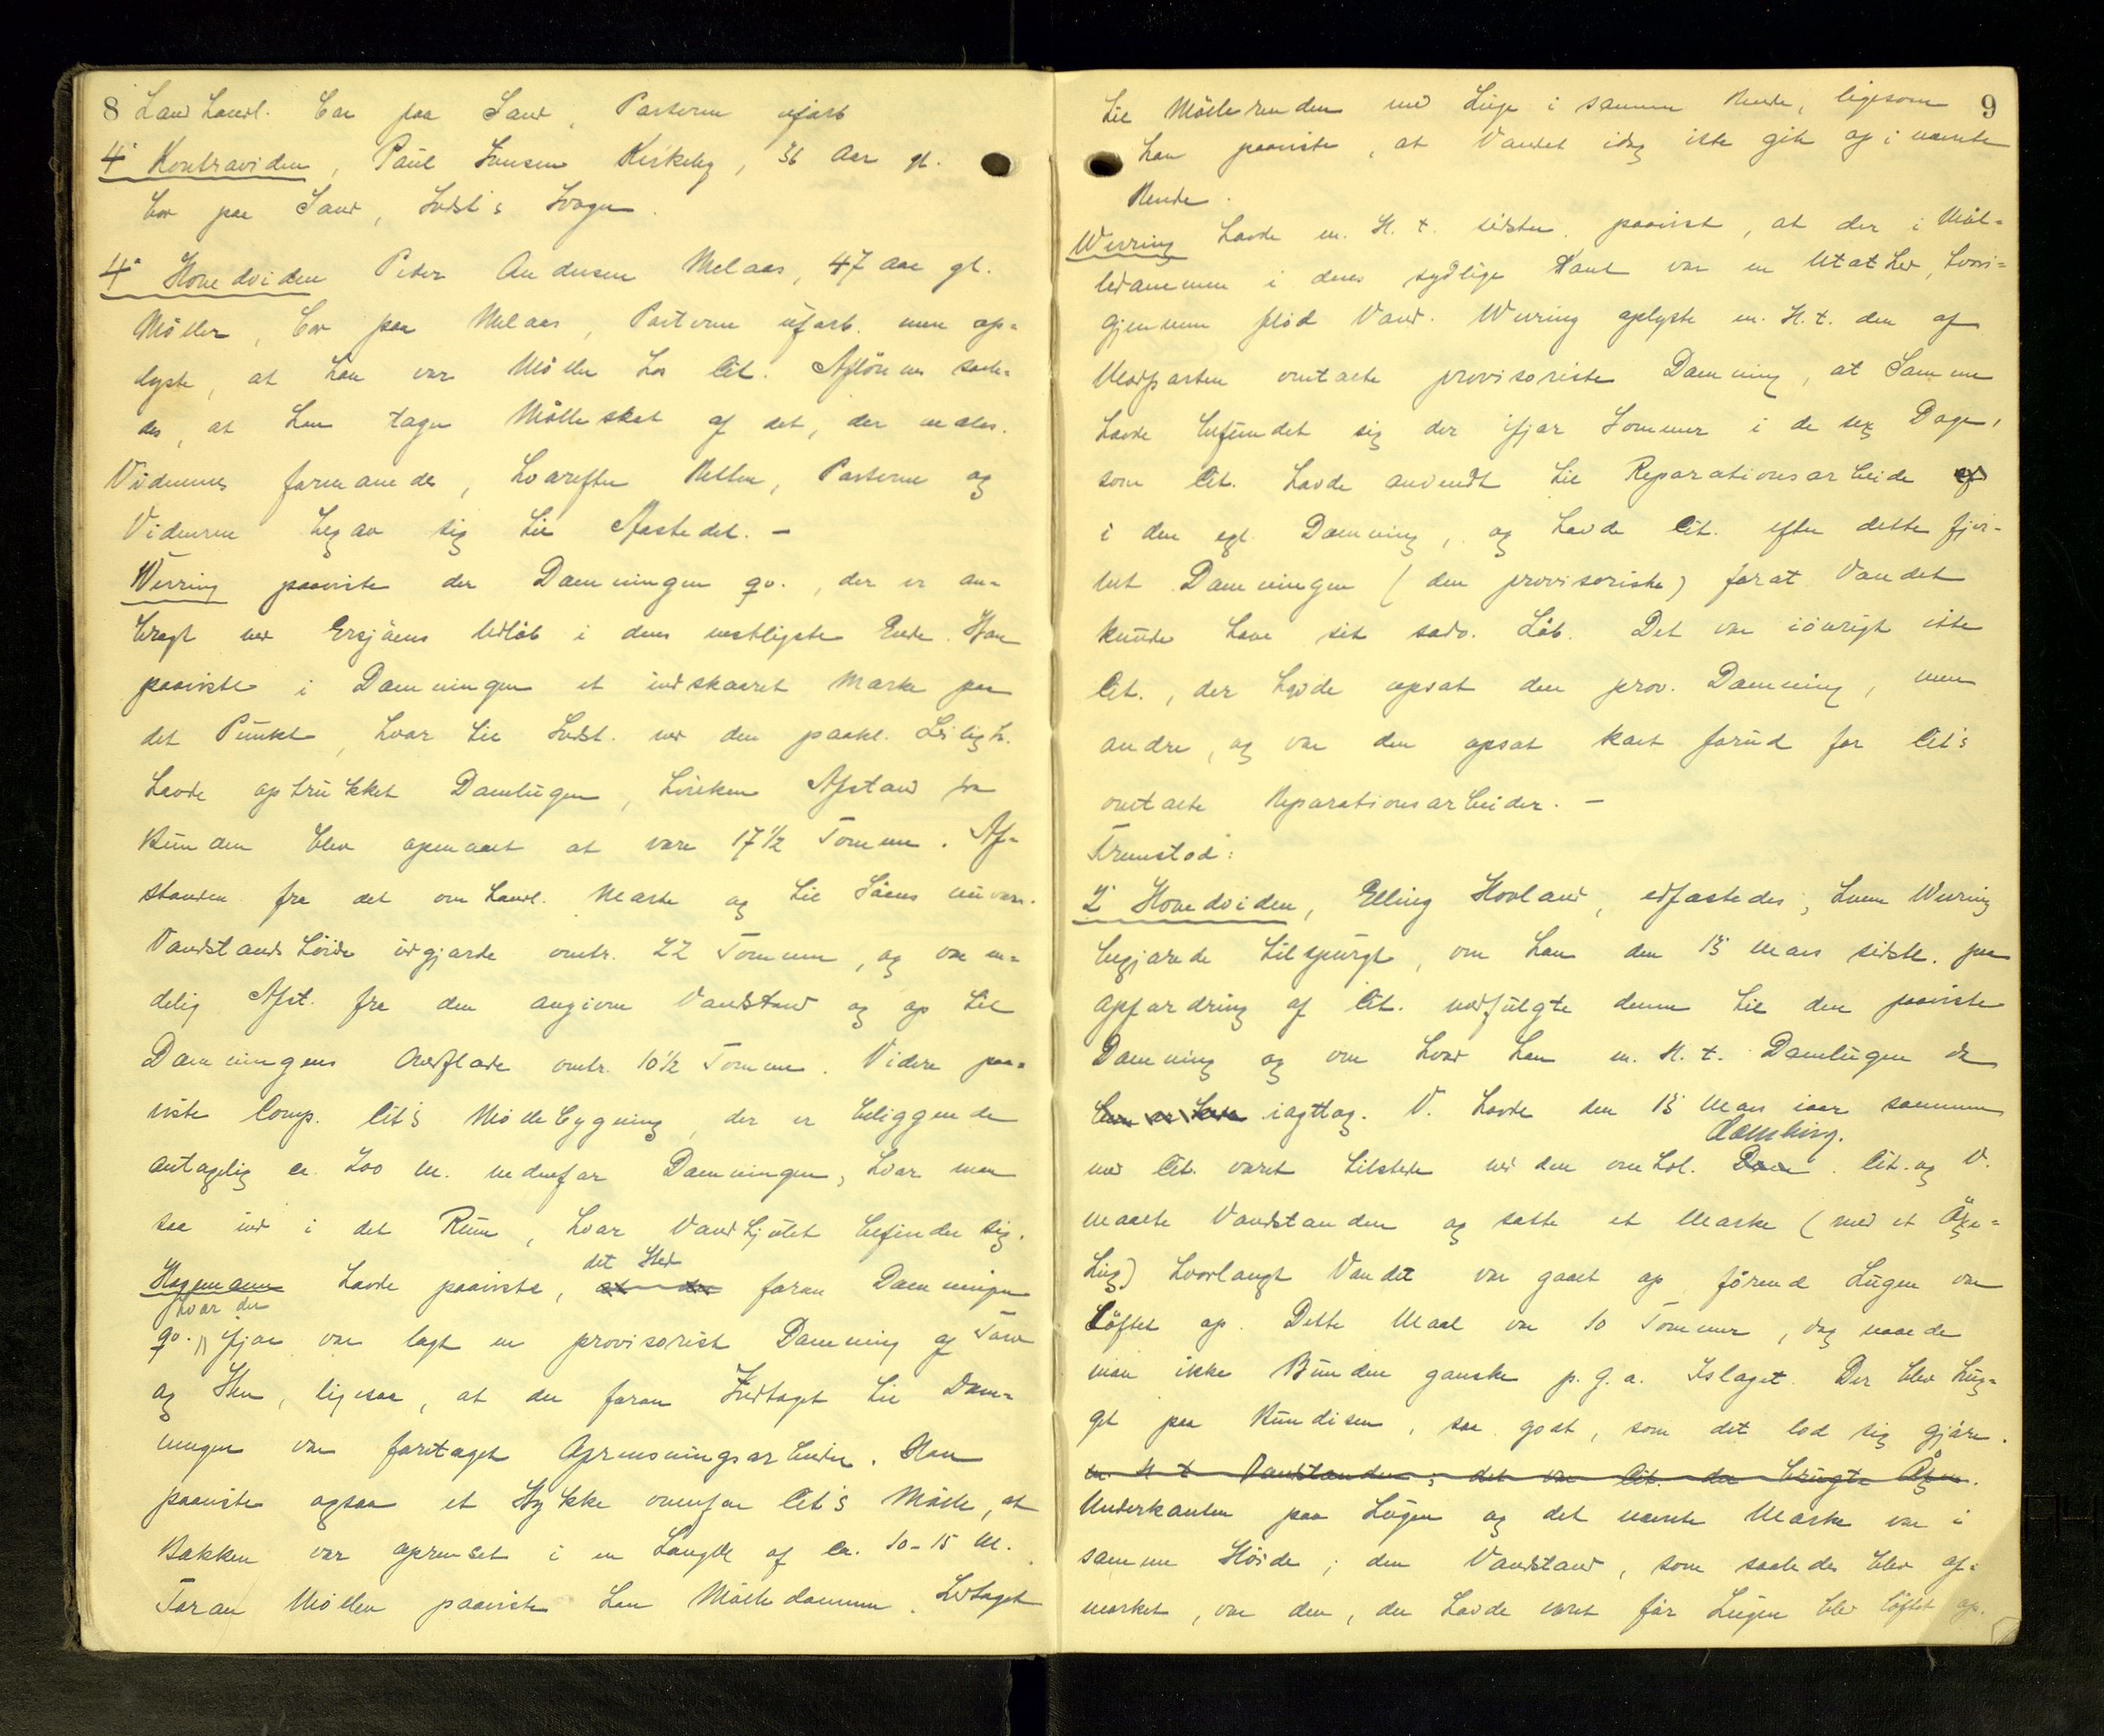 8
Landhandl. Bor paa Sand, Parterne ufarb
4° Kontraviden, Paul Jensen Kirkeby, 36 Aar gl.
bor paa Sand, Indst's Svoger.
4° Hovedviden Peter Andersen Melaas, 47 Aar gl.
Møller, bor paa Melaas, Parterne ufarb. men op-
lyste, at han var Møller hos Cit. Aflønnes saale-
des, at han tager Mølleskat af det, der males.
Vidnerne formanedes, hvorefter Retten, Parterne og
Vidnerne begav sig til Aastedet. –
Werring paaviste der Dæmningen qv., der er an-
bragt ved Ersjøens Udløb i dens vestligste Ende. Han
paaviste i Dæmningen et indskaaret Mærke paa
det Punkt, hvor til Indst. ved den paakl. Leiligh.
havde optrukket Damlugen, hvilken Afstand fra
Bunden blev opmaalt at være 17½ Tomme. Af-
standen fra det omhandl. Mærke og til Søens nuvær.
Vandstands Høide udgjorde omtr. 22 Tommer, og var en-
delig Afst. fra den angivne Vandstand og op til
Dæmningens Overflade omtr. 10½ Tomme. Videre paa-
viste Comp. Cit's Møllebygning, der er beliggende
antagelig ca. 200 M. nedenfor Dæmningen, hvor man
saa ind i det Rum, hvor Vandhjulet befinder sig.
det Sted
Hagemann havde paaviste, at der foran Dæmningen
hvor der
qv. ifjor var lagt en provisorisk Dæmning af Torv
og Sten, ligesaa, at der foran Indtaget til Dæm-
ningen var foretaget Oprensningsarbeider. Han
paaviste ogsaa et Stykke ovenfor Cit's Mølle, at
Bækken var oprenset i en Længde af ca. 10-15 M.
Foran Møllen paaviste han Mølledammen. Udtaget
9
til Møllerenden med Luge i samme Rende, ligesom
han paaviste, at Vandet idag ikke gik op i nævnte
Rende.
Werring havde m. H. t. sidstn. paavist, at der i Møl-
ledammen i dens sydlige Kant var en Utæthed, hvori-
gjennem flød Vand. Werring oplyste m. H. t. den af
Modparten omtalte provisoriske Dæmning, at Samme
havde befundet sig der ifjor Sommer i de sex Dage,
som Cit. havde anvendt til Reparationsarbeide
i den egl. Dæmning, og havde Cit. efter dette fjer-
net Dæmningen (den provisoriske) forat Vandet
kunde have sit sædv. Løb. Det var iøvrigt ikke
Cit., der havde opsat den prov. Dæmning, men
andre, og var den opsat kort forud for Cit's
omtalte Reparationsarbeider. –
Fremstod:
2° Hovedviden, Elling Hovland, edfæstedes, hvem Werring
begjærede tilspurgt, om han den 15 Mars sidstl. paa
Opfordring af Cit. medfulgte denne til den paaviste
Dæmning og om hvad han m. H. t. Damlugen da
iagttog. V. havde den 15 Mars iaar sammen
dæmning.
med Cit. været tilstede ved den omhdl. Dam. Cit. og V.
maalte Vandstanden og satte et Mærke (med et Øxe-
hug) hvorlangt Vandet var gaaet op førend Lugen var
løftet op. Dette Maal var 10 Tommer, dog naaede
man ikke Bunden ganske p. g. a. Islaget. Der blev hug-
get paa Bundisen, saa godt, som det lod sig gjøre.
m. H. t. Vandstanden; det var Cit. der brugte Øxen.
Underkanten paa Lugen og det nævnte Mærke var i
samme Høide; den Vandstand, som saaledes blev af-
mærket, var den, der havde været før Lugen blev løftet op.